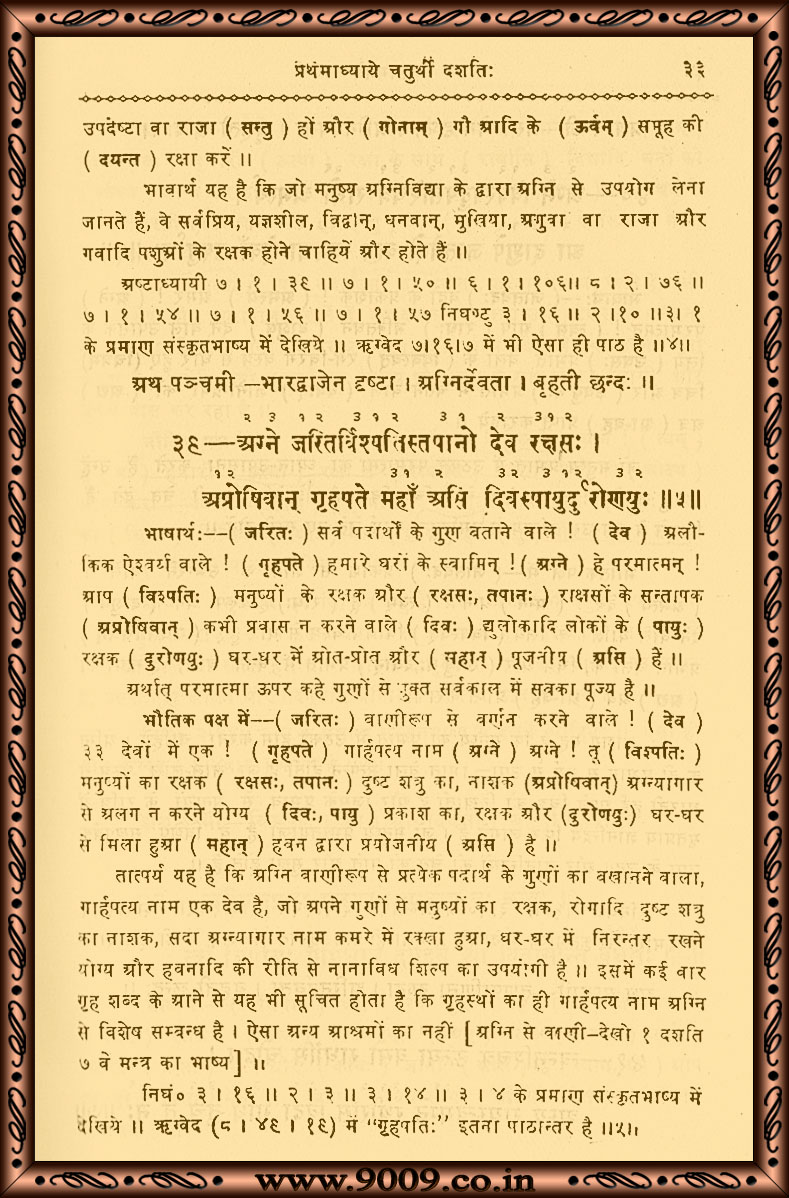 प्रथमाध्याये चतुर्थी दशतिः ३३
उपदेष्टा वा राजा ( सन्तु ) हों और ( गोनाम् ) गौ आदि के ( ऊर्वम् ) समूह की
( दयन्त ) रक्षा करें ।।
भावार्थ यह है कि जो मनुष्य अग्निविद्या के द्वारा अग्नि से उपयोग लेना
जानते हैं, वे सर्वप्रिय, यज्ञशील, विद्वान्, धनवान्, मुखिया, अगुवा वा राजा और
गवादि पशुओं के रक्षक होने चाहियें और होते हैं ।।
अष्टाध्यायी ७ । १ । ३९ ।। ७ । १ । ५० ।। ६ । १ । १०६।। ८ । २ । ७६ ।।
७ । १ । ५४ ।। ७ । १ । ५६ ।। ७ । १ । ५७ निघण्टु ३ । १६ ।। २ ।१० ।।३। १
के प्रमाण संस्कृतभाष्य में देखिये ।। ऋग्वेद ७।१६।७ में भी ऐसा ही पाठ है ।।४।।
अथ पञ्चमी –भारद्वाजेन दृष्टा । अग्निर्देवता । बृहती छन्दः ।।
२ ३ १ २ ३ १ २ ३ १ २ ३१ २
३९—अग्ने जरितर्विश्पतिस्तपानो देव रक्षसः ।
१ २ ३ १ २ ३ २ ३ १ २ ३ २
अप्रोषिवान् गृहपते महाँ असि दिवस्पायुर्दुरोणयुः ।।५।।
भाषार्थः—( जरितः ) सर्व पदार्थों के गुण बताने वाले ! ( देव ) अलौ-
किक ऐश्वर्य वाले ! ( गृहपते ) हमारे घरों के स्वामिन् ! ( अग्ने ) हे परमात्मन् !
आप ( विश्पतिः ) मनुष्यों के रक्षक और ( रक्षसः, तपानः ) राक्षसों के सन्तापक
( अप्रोषिवान् ) कभी प्रवास न करने वाले ( दिवः ) द्युलोकादि लोकों के ( पायुः )
रक्षक ( दुरोणयुः ) घर-घर में ओत-प्रोत और ( महान् ) पूजनीय ( असि ) हैं ।।
अर्थात् परमात्मा ऊपर कहे गुणों से युक्त सर्वकाल में सबका पूज्य है ।।
भौतिक पक्ष में—( जरितः ) वाणीरूप से वर्णन करने वाले ! ( देव )
३३ देवों में एक ! ( गृहपते ) गार्हपत्य नाम ( अग्ने ) अग्ने ! तू ( विश्पतिः )
मनुष्यों का रक्षक ( रक्षसः, तपानः ) दुष्ट शत्रु का, नाशक (अप्रोषिवान्) अग्न्यागार
से अलग न करने योग्य ( दिवः, पायु ) प्रकाश का, रक्षक और (दुरोणयुः) घर-घर
से मिला हुआ ( महान् ) हवन द्वारा प्रयोजनीय ( असि ) है ।।
तात्पर्य यह है कि अग्नि वाणीरूप से प्रत्येक पदार्थ के गुणों का बखानने वाला,
गार्हपत्य नाम एक देव है, जो अपने गुणों से मनुष्यों का रक्षक, रोगादि दुष्ट शत्रु
का नाशक, सदा अग्न्यागार नाम कमरे में रक्खा हुआ, घर-घर में निरन्तर रखने
योग्य और हवनादि की रीति से नानाविध शिल्प का उपयोगी है ।। इसमें कई बार
गृह शब्द के आने से यह भी सूचित होता है कि गृहस्थों का ही गार्हपत्य नाम अग्नि
से विशेष सम्बन्ध है । ऐसा अन्य आश्रमों का नहीं [ अग्नि से वाणी–देखो १ दशति
७ वे मन्त्र का भाष्य ] ।।
निघं० ३ । १६ ।। २ । ३ ।। ३ । १४ ।। ३ । ४ के प्रमाण संस्कृतभाष्य में
देखिये ।। ऋग्वेद (८ । ४९ । १९) में “गृहपतिः” इतना पाठान्तर है ।।५।।
www.9009.co.in